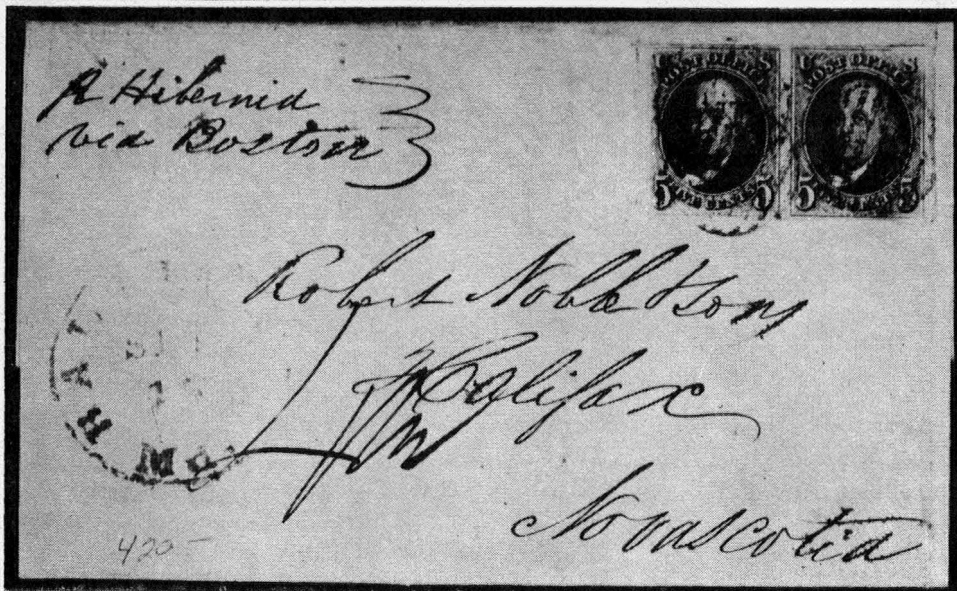 p Hibernia
via Boston
U S
POST OFFICE
5 FIVE CENTS 5
U S
POST OFFICE
5 FIVE CENTS 5
Robert Noble & Sons
Halifax
Novascotia
420-